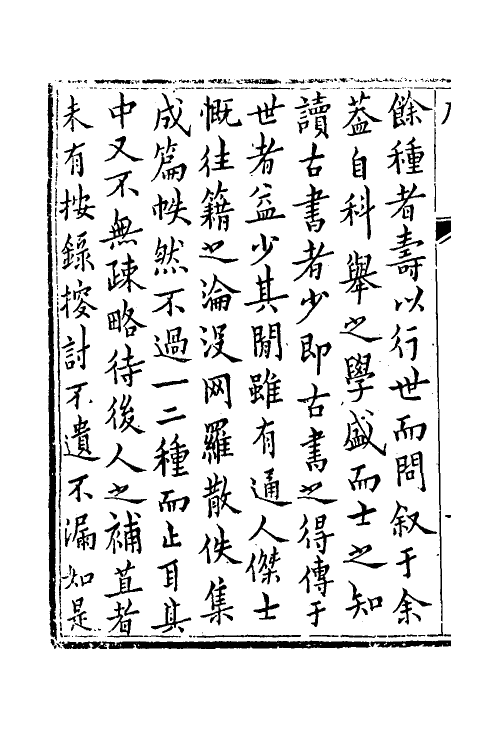 餘種者壽以行世而問叙于余
葢自科舉之學盛而士之知
讀古書者少即古書之得傳于
世者益少其閒雖有通人傑士
慨往籍之淪没网羅散佚集
成篇帙然不過一二種而止耳其
中又不無疎略待後人之補苴者
未有按錄搜討不遺不漏如是